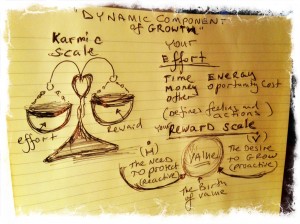 "DYNAMIC COMPONENT
of GROWTH"
Karmic
Scale
effort
Reward
Your
Effort
Time Energy
Money Opportunity Cost
other
(Defines feelings and
actions)
your REWARD SCALE
(H)
The NEED
to protect
(reactive)
Value
(V)
The Desire
to GROW
(proactive)
The Birth
of value